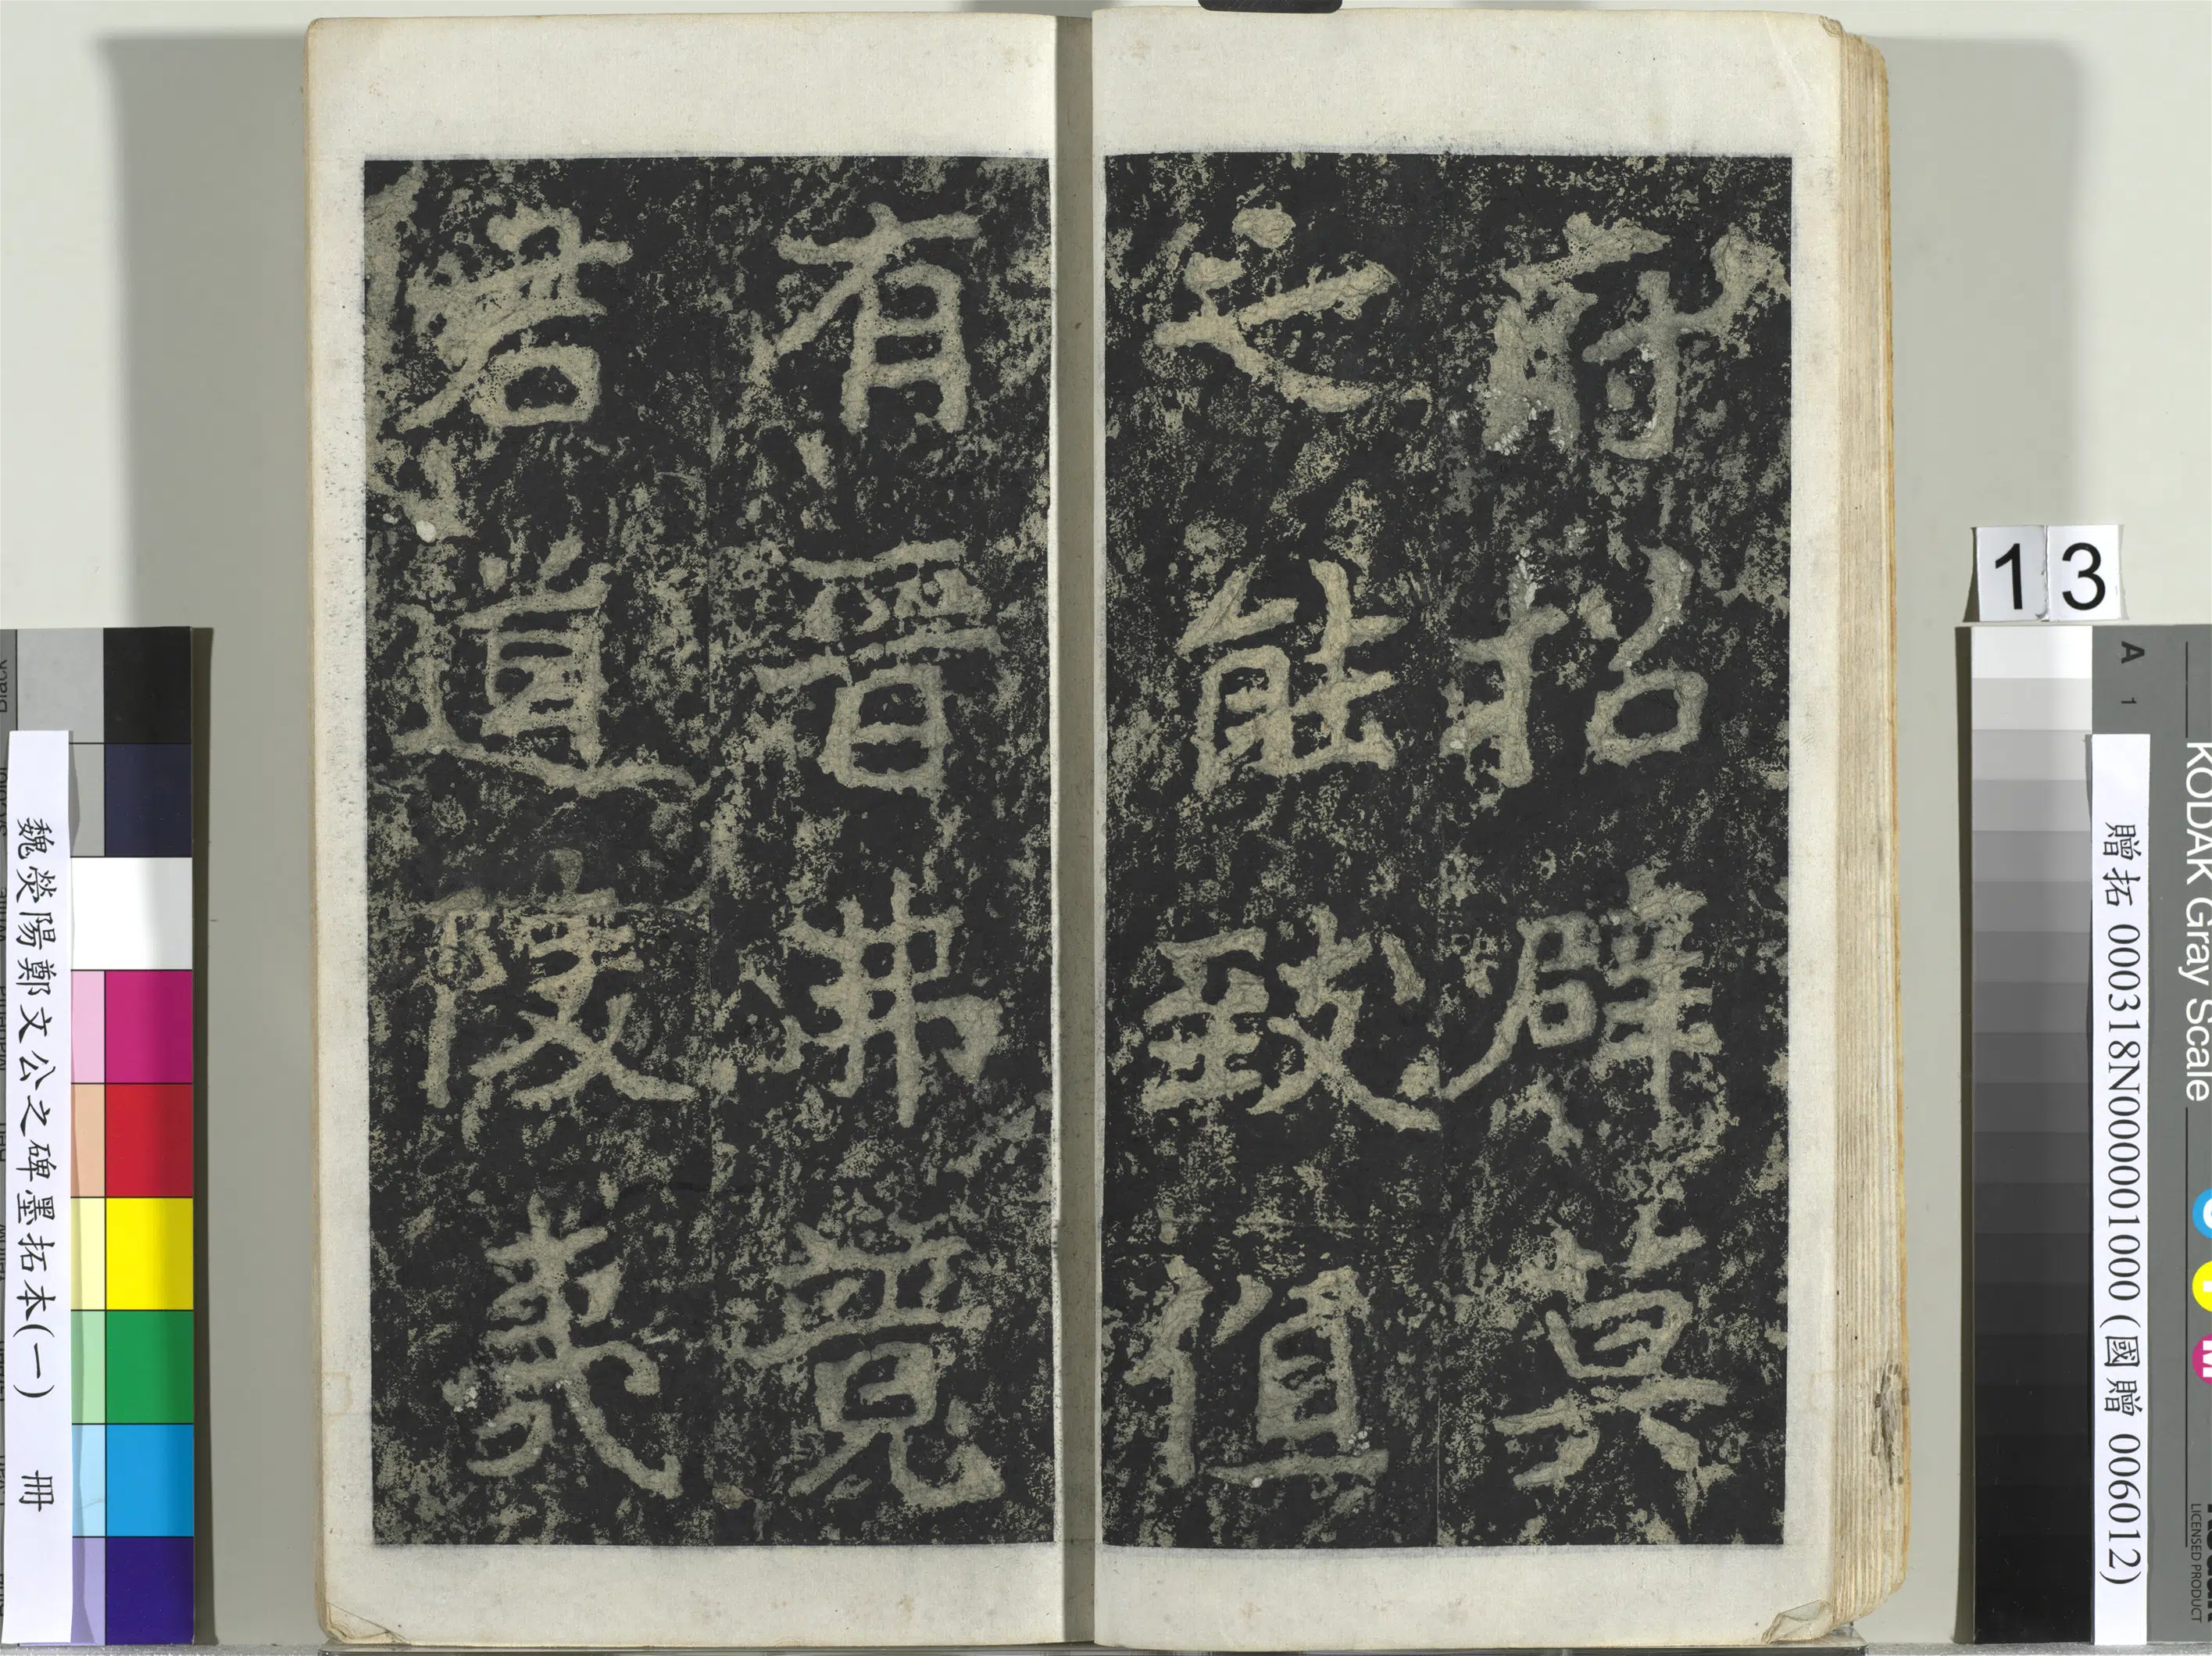 府招辟莫
之能致值
有晉弗竟
君道陵夷
魏滎陽鄭文公之碑墨拓本(一) 冊
13
A 1
KODAK Gray Scale
LICENSED PRODUCT
贈拓 000318N000001000 (國贈 006012)